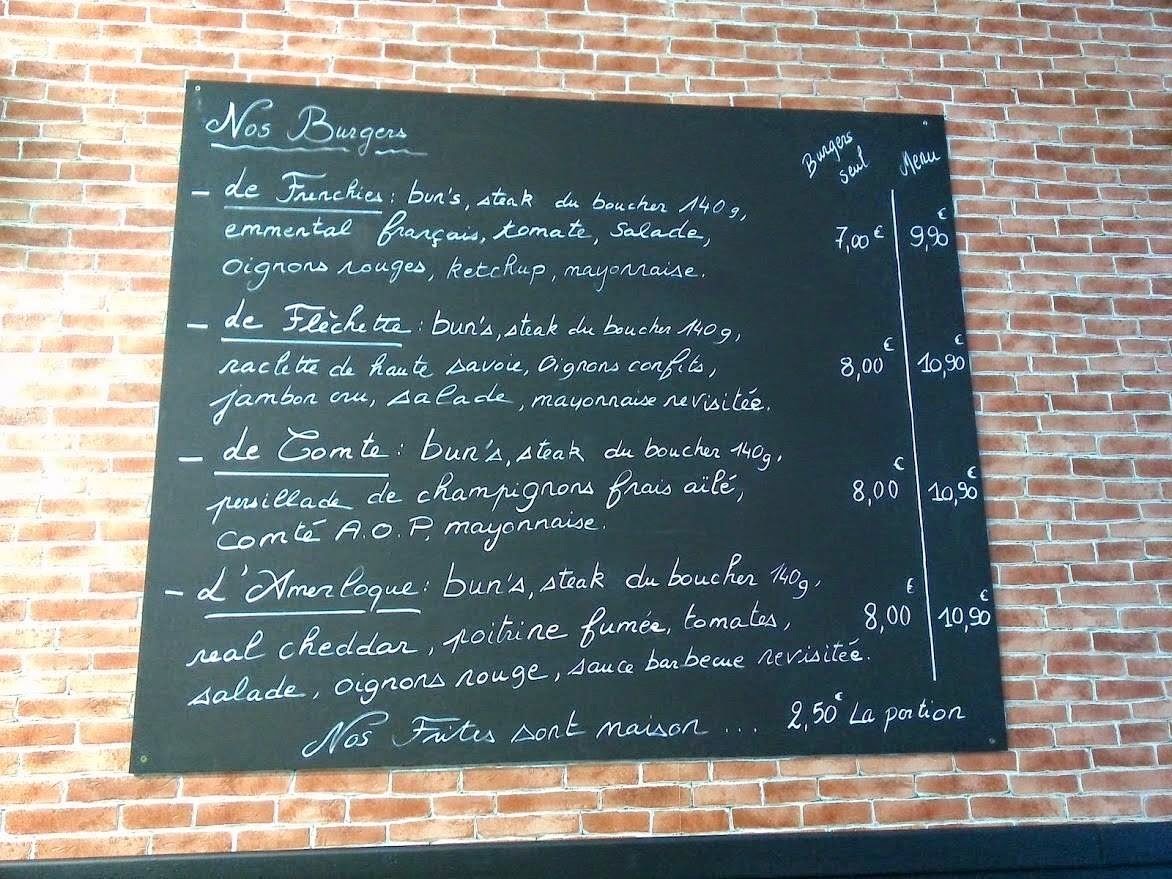 Nos Burgers
Burgers seul Menu
- Le Frenchies : bun's, steak du boucher 140g,
emmental français, tomate, salade, 7,00 € 9,90 €
oignons rouges, ketchup, mayonnaise.
- Le Flèchette : bun's, steak du boucher 140g,
raclette de haute savoie, oignons confits, 8,00 € 10,90 €
jambon cru, salade, mayonnaise revisitée.
- Le Comte : bun's, steak du boucher 140g,
persillade de champignons frais aïlé, 8,00 € 10,90 €
comté A.O.P, mayonnaise.
- L'Amerloque : bun's, steak du boucher 140g,
real cheddar, poitrine fumée, tomates, 8,00 € 10,90 €
salade, oignons rouge, sauce barbecue revisitée.
Nos Frites sont maison ... 2,50 € La portion